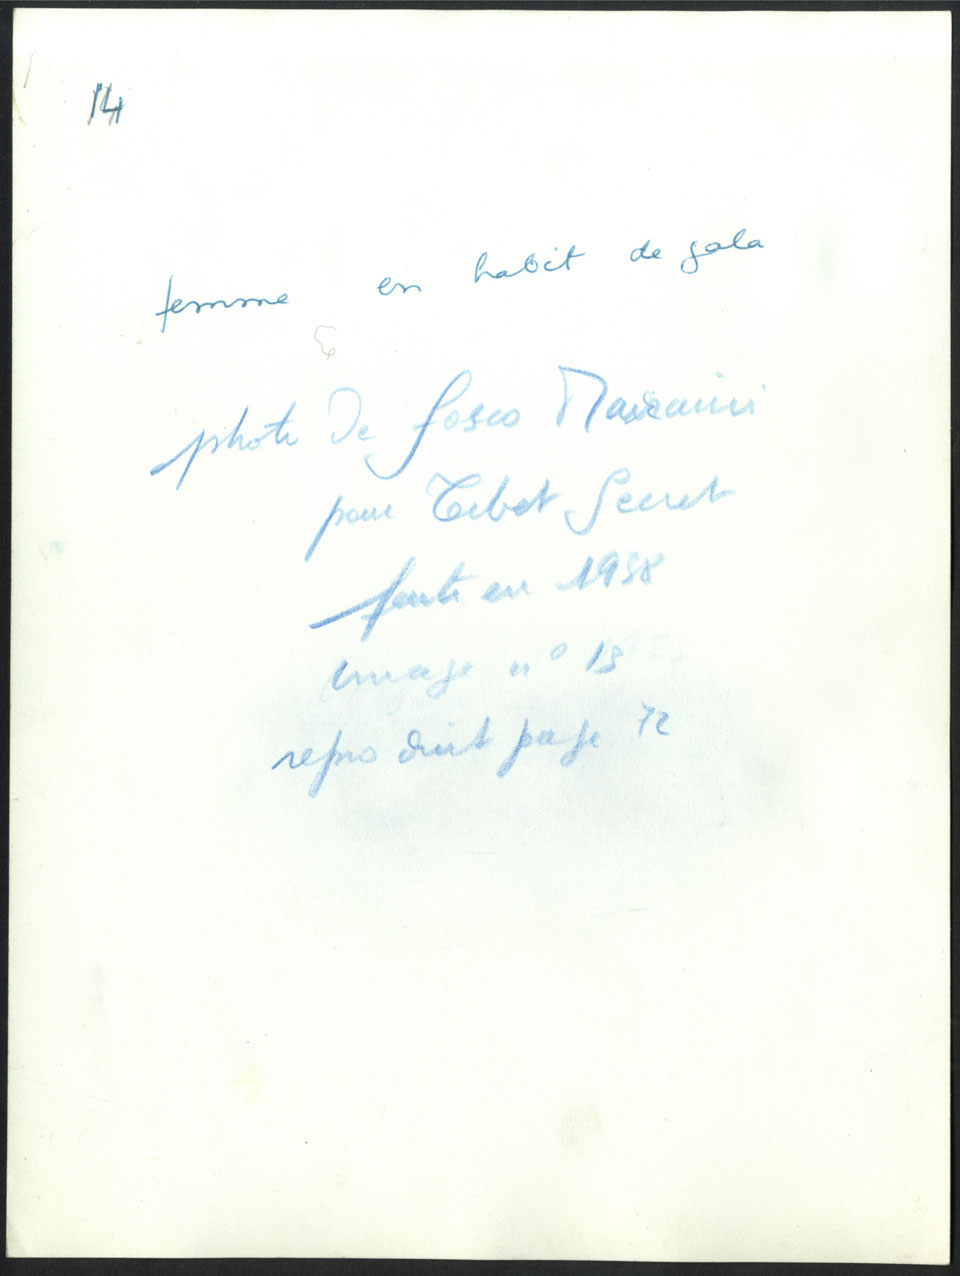 14
femme en habit de gala
photo de fosco Maraini
pour Tibet Secret
faite en 1938
image n° 13
reproduit page 72